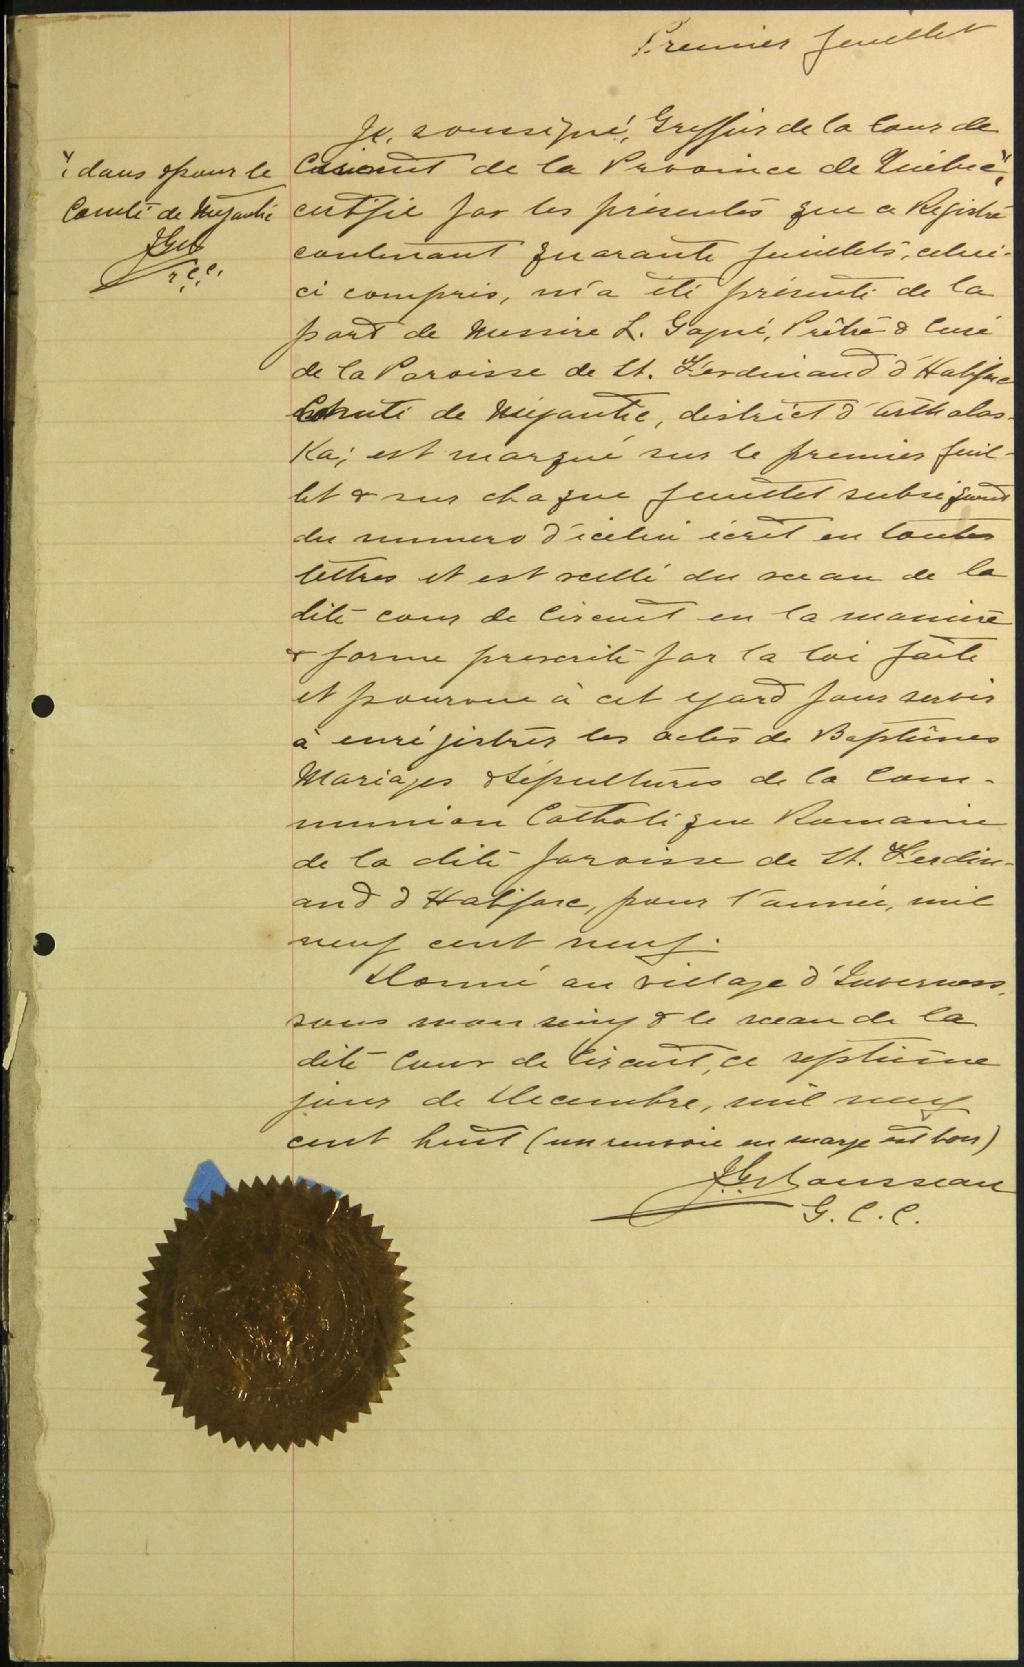 Premier feuillet
Je, soussigné, Greffier de la Cour de
Circuit de la Province de Québec,
certifie par les présentes que ce Régistre
contenant quarante feuillets, celui-
ci compris, m'a été présenté de la
part de Messire L. Gagné, Prêtre & Curé
de la Paroisse de St. Ferdinand d'Halifax
Comté de Mégantic, district d'Arthabas-
Ka; est marqué sur le premier feuil-
let & sur chaque feuillet subséquent
du numero d'icelui écrit en toutes
lettres et est scellé du sceau de la
dite cour de Circuit en la manière
& forme prescrite par la loi faite
et pourvue à cet egard pour servir
à enrégistrer les actes de Baptêmes
Mariages & Sépultures de la Com-
munion Catholique Romaine
de la dite paroisse de St. Ferdin-
and d'Halifax, pour l'année, mil
neuf cent neuf.
Donné au village d'Inverness,
sous mon seing & le sceau de la
dite Cour de Circuit, ce septième
jour de Decembre, mil neuf
cent huit (un renvoie en marge est bon)
Rousseau
G. C. C.
dans & pour le
Comté de Mégantic
G.C.C.